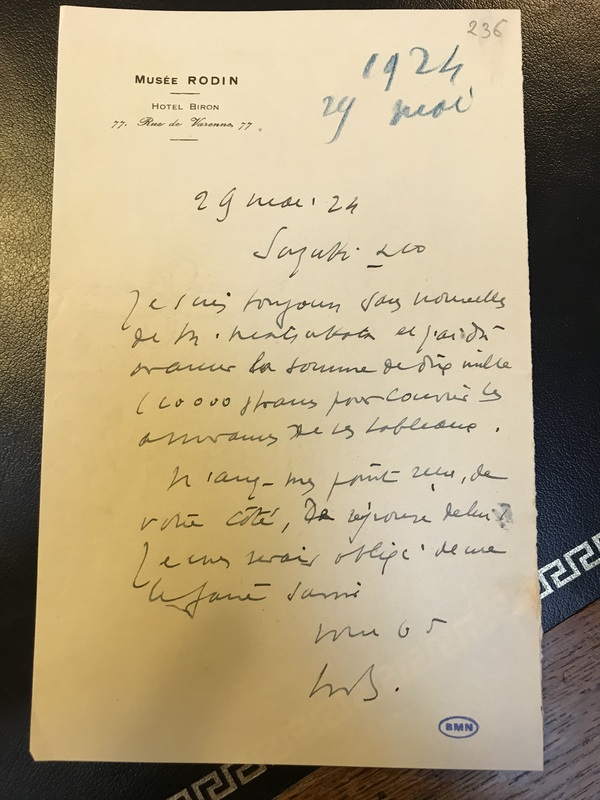 236
MUSÉE RODIN
HOTEL BIRON
77. Rue de Varenne, 77.
1924
29 mai
29 mai 24
Suzuki & co
Je suis toujours sans nouvelles
de M. Matsukata et j'ai dû
avancer la somme de dix mille
(10000) francs pour couvrir les
assurances de ses tableaux.
N'avez-vous point reçu, de
votre côté, de réponse de lui ?
Je vous serais obligé de me
le faire savoir
BMN